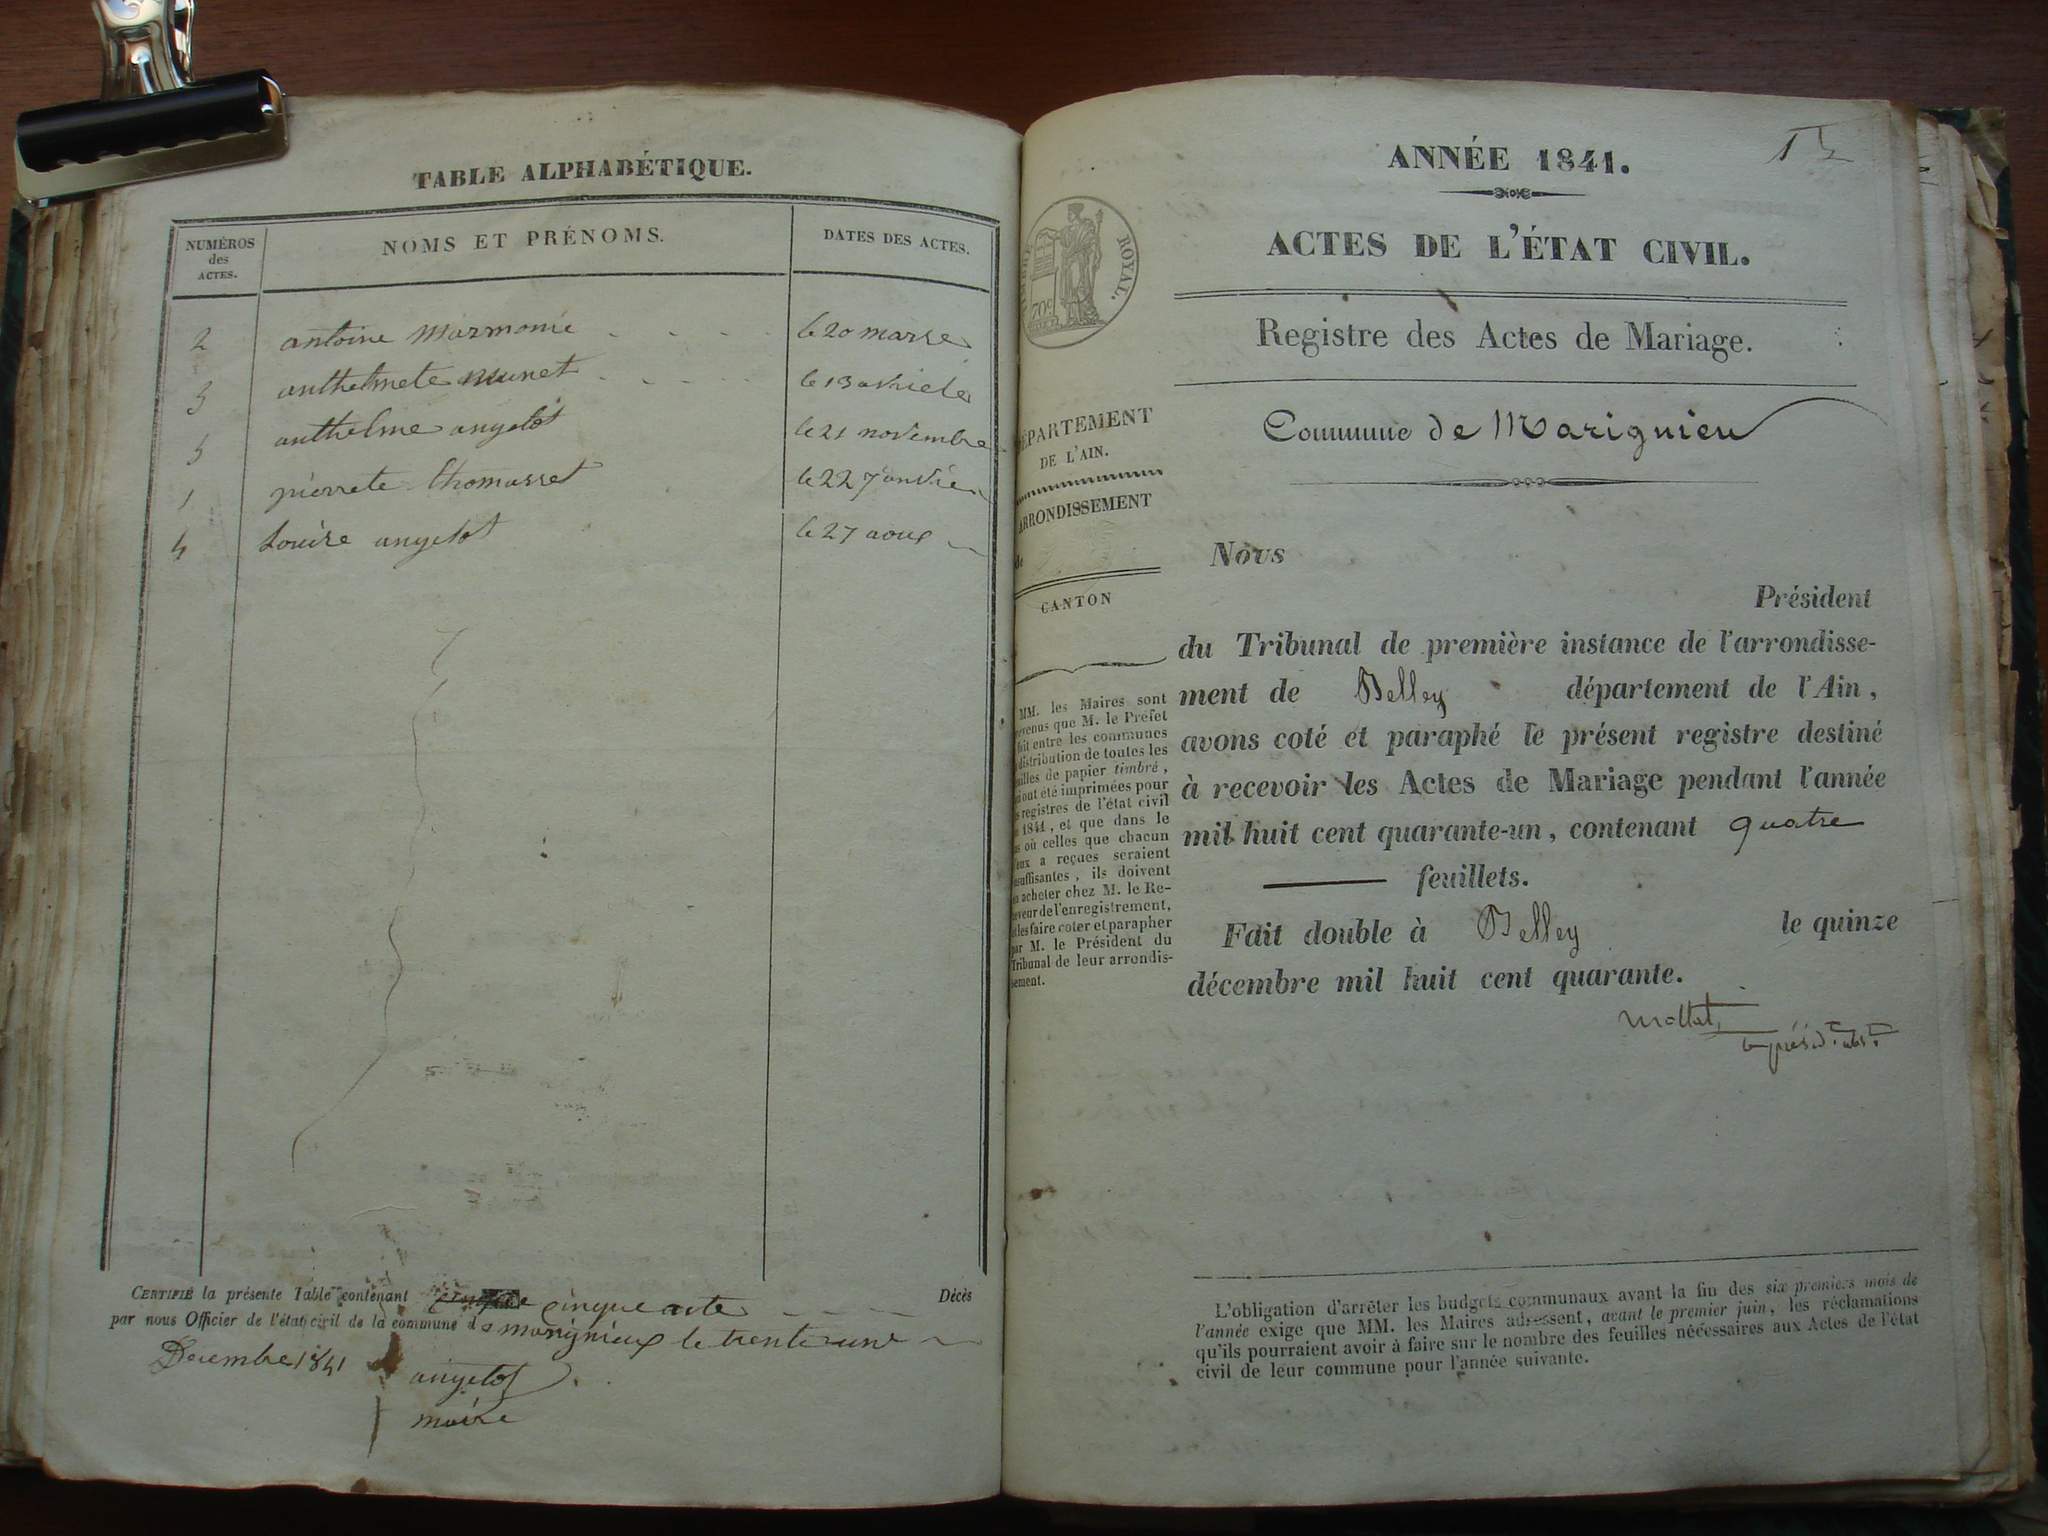 TABLE ALPHABÉTIQUE.
NUMÉROS
des
ACTES.
NOMS ET PRÉNOMS.
DATES DES ACTES.
2 antoine marmonie le 20 marse
3 anthelmete munet le 13 avriele
5 anthelme angelot le 21 novembre
1 pierrete thomasset le 22 janvie
4 Louise angelot le 27 aout
CERTIFIÉ la présente Table contenant cinque acte Décès
par nous Officier de l'état civil de la commune de marignieux le trente une
Decembre 1841
angelot
maire
ANNÉE 1841.
ACTES DE L'ÉTAT CIVIL.
ROYAL.
70c
Registre des Actes de Mariage.
Commune de Marignieu
DÉPARTEMENT
DE L'AIN.
ARRONDISSEMENT
de
CANTON
MM. les Maires sont
prévenus que M. le Préfet
fait entre les communes
la distribution de toutes les
feuilles de papier timbré,
qui ont été imprimées pour
les registres de l'état civil
de 1841, et que dans le
cas où celles que chacun
d'eux a reçues seraient
insuffisantes, ils doivent
en acheter chez M. le Re-
ceveur de l'enregistrement,
et les faire coter et parapher
par M. le Président du
Tribunal de leur arrondis-
sement.
Nous
Président
du Tribunal de première instance de l'arrondisse-
ment de Belley département de l'Ain,
avons coté et paraphé le présent registre destiné
à recevoir les Actes de Mariage pendant l'année
mil huit cent quarante-un, contenant quatre
feuillets.
Fait double à Belley le quinze
décembre mil huit cent quarante.
L'obligation d'arrêter les budgets communaux avant la fin des six premiers mois de
l'année exige que MM. les Maires adressent, avant le premier juin, les réclamations
qu'ils pourraient avoir à faire sur le nombre des feuilles nécessaires aux Actes de l'état
civil de leur commune pour l'année suivante.